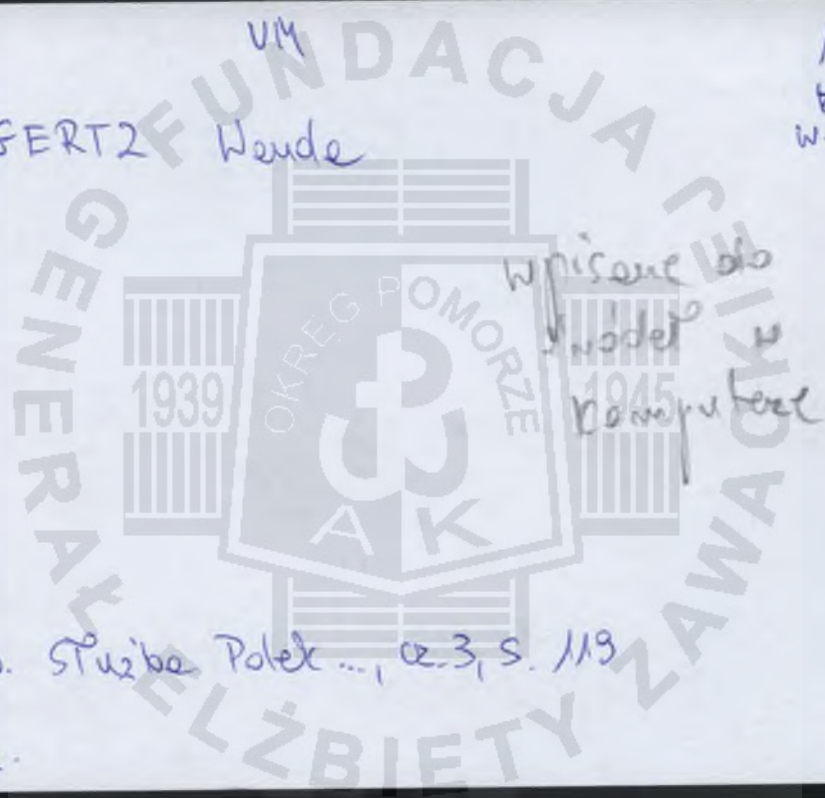 VM
GERTZ Wanda
wpisane do
źródeł w
komputerze
. Służba Polek ..., cz. 3, s. 119
FUNDACJA
GENERAŁ ELŻBIETY ZAWACKIEJ
OKRĘG POMORZE
1939
1945
AK